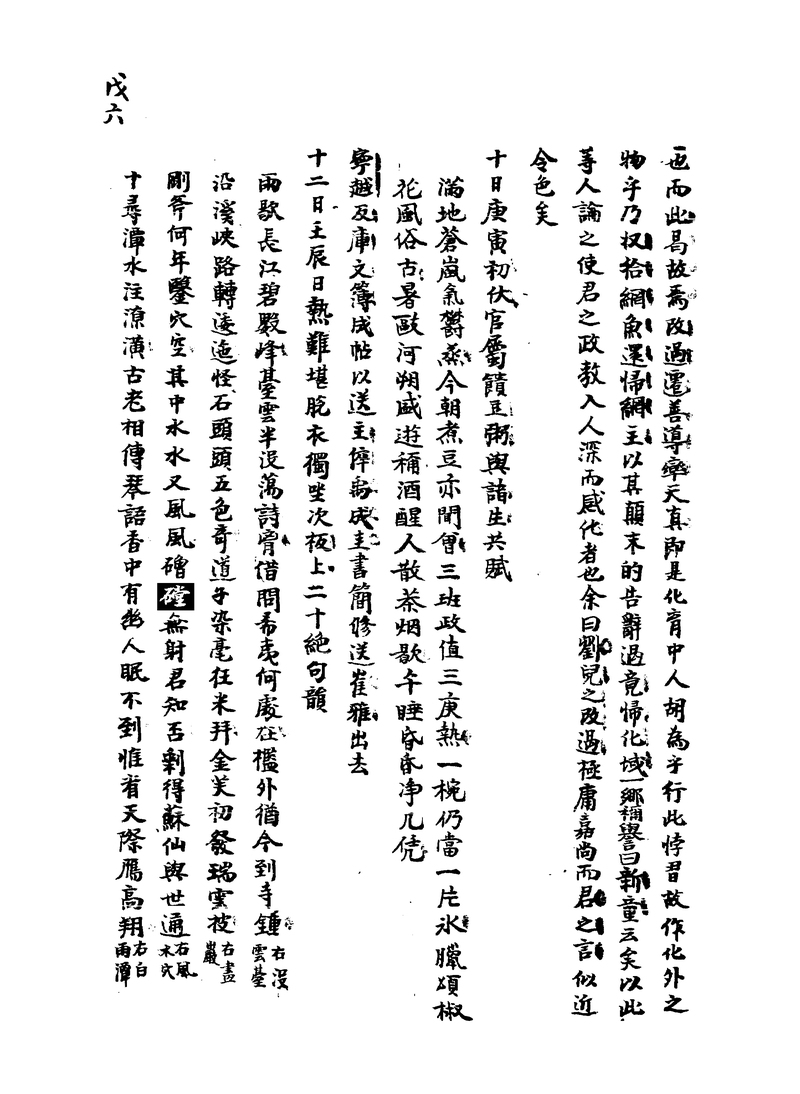 戊六
也而此曷故焉改過遷善導率天真即是化育中人胡為乎行此悖習故作化外之
物乎乃收拾網魚還歸網主以其顚末的告辭過竟歸化域一鄉稱譽曰新童云矣以此
等人論之使君之政教入人深而感化者也余曰劉兒之改過極庸嘉尚而君之言似近
令色矣
十日庚寅初伏官屬饋豆粥與諸生共賦
滿地蒼嵐氣鬱蒸今朝煮豆亦聞會三班政值三庚熱一椀仍當一片氷臘頌椒
花風俗古暑敺河朔盛遊稱酒醒人散茶烟歇午睡昏昏淨几凭
寧越反庫文簿成帖以送主倅禹成圭書簡修送崔雅出去
十二日壬辰日熱難堪脫衣獨坐次板上二十絶句韻
雨歇長江碧殿峰臺雲半沒蕩詩胷借問希夷何處在檻外猶今到寺鍾右沒雲臺
沿溪峽路轉逶迤怪石頭頭五色奇道子染毫狂米拜金芙初發瑞雲披右畫巖
剛斧何年鑿穴空其中水水又風風磳磴無射君知否剩得蘇仙與世通右風木穴
十尋潭水注潦潢古老相傳琴語香中有幽人眠不到惟看天際鴈高翔右白雨潭